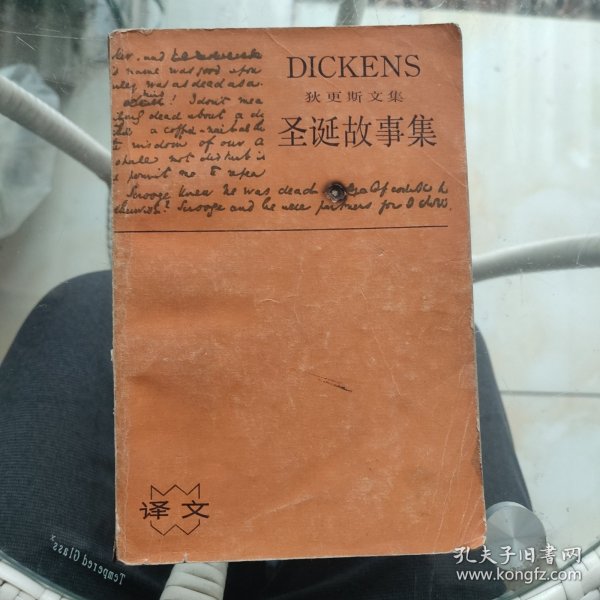 DICKENS
狄更斯文集
圣诞故事集
name was good upon
was as dead as a
! I don't mea
dead about a d
a coffin-nail
wisdom of our
shall not disturb i
permit me to repea
Scrooge knew he was dead? Of course he
? Scrooge and he were partners for I don't
译文
Tempered Glass
孔夫子旧书网
www.kongfz.com